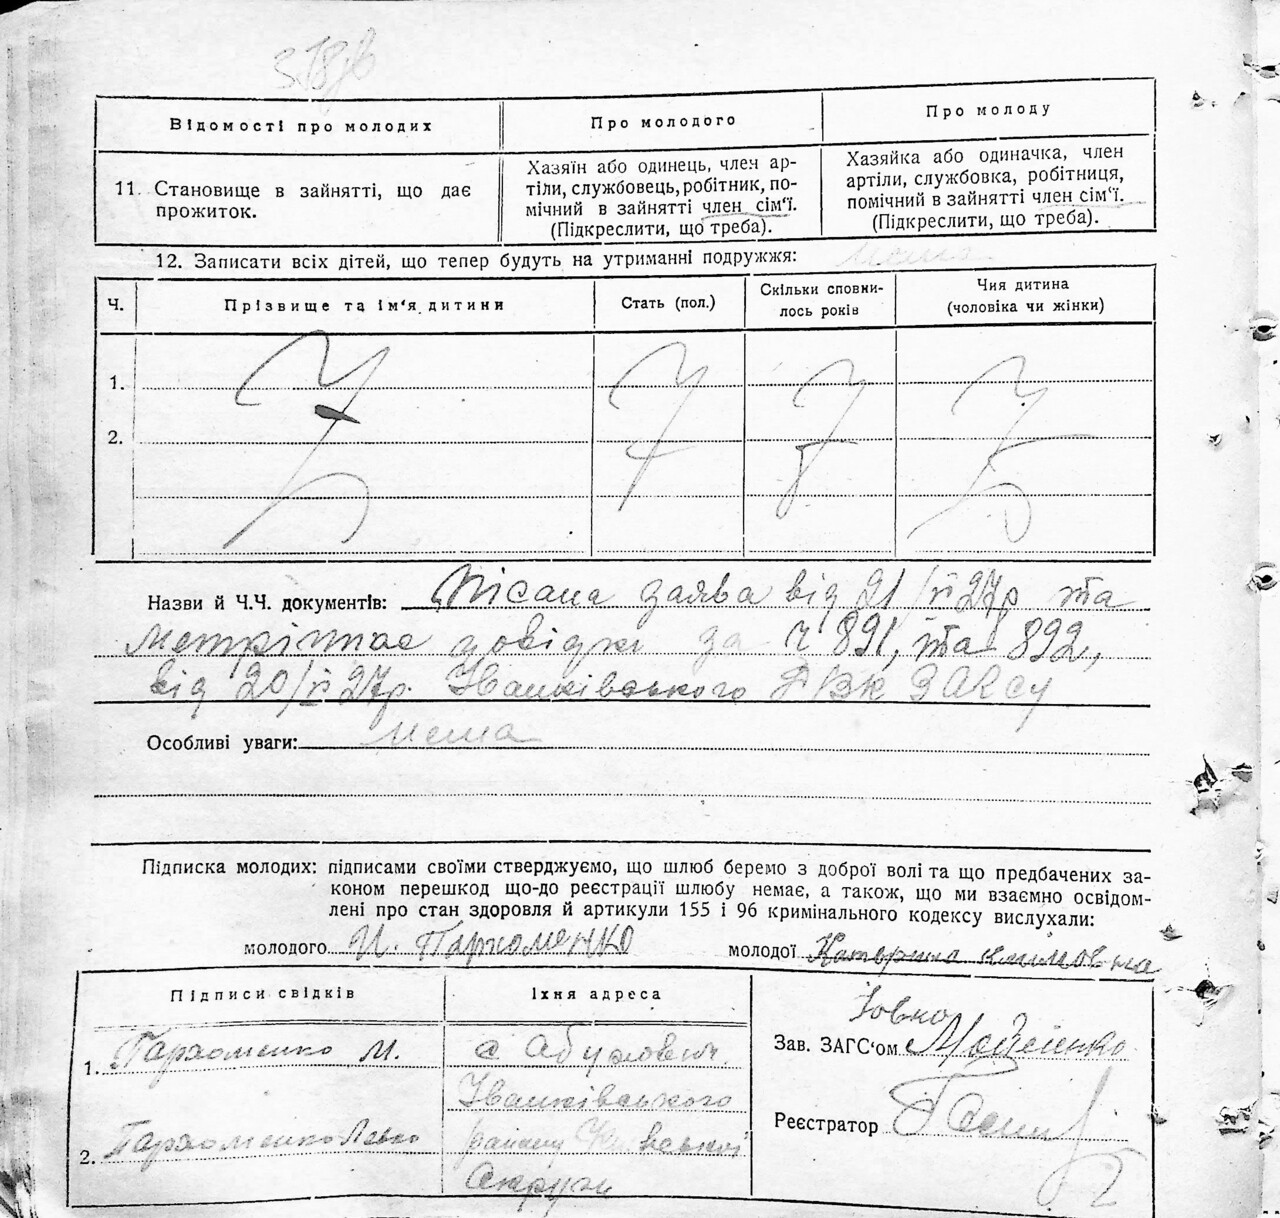 Відомості про молодих
Про молодого
Про молоду
11. Становище в зайнятті, що дає
прожиток.
Хазяїн або одинець, член ар-
тіли, службовець, робітник, по-
мічний в зайнятті член сім'ї.
(Підкреслити, що треба).
Хазяйка або одиначка, член
артіли, службовка, робітниця,
помічний в зайнятті член сім'ї.
(Підкреслити, що треба).
12. Записати всіх дітей, що тепер будуть на утриманні подружжя: нема
Ч.
Прізвище та ім'я дитини
Стать (пол.)
Скільки сповни-
лось років
Чия дитина
(чоловіка чи жінки)
1.
2.
Назви й Ч.Ч. документів: Пісана заява від 21/ 27р та
за ч 891, та 892,
від 20/ 27р. Іванківського РВК ЗАГСу
Особливі уваги: нема
Підписка молодих: підписами своїми стверджуємо, що шлюб беремо з доброї волі та що предбачених за-
коном перешкод що-до реєстрації шлюбу немає, а також, що ми взаємно освідом-
лені про стан здоровля й артикули 155 і 96 кримінального кодексу вислухали:
молодого И. Пархоменко
молодої Катерина
Підписи свідків
Їхня адреса
1. Пархоменко М.
с
Іванківського
2. Пархоменко Левко
району
Округи
Зав. ЗАГС'ом
Реєстратор